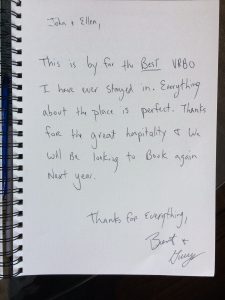 John & Ellen,
This is by far the Best VRBO
I have ever stayed in. Everything
about the place is perfect. Thanks
for the great hospitality & we
will be looking to Book again
Next year.
Thanks for Everything,
&